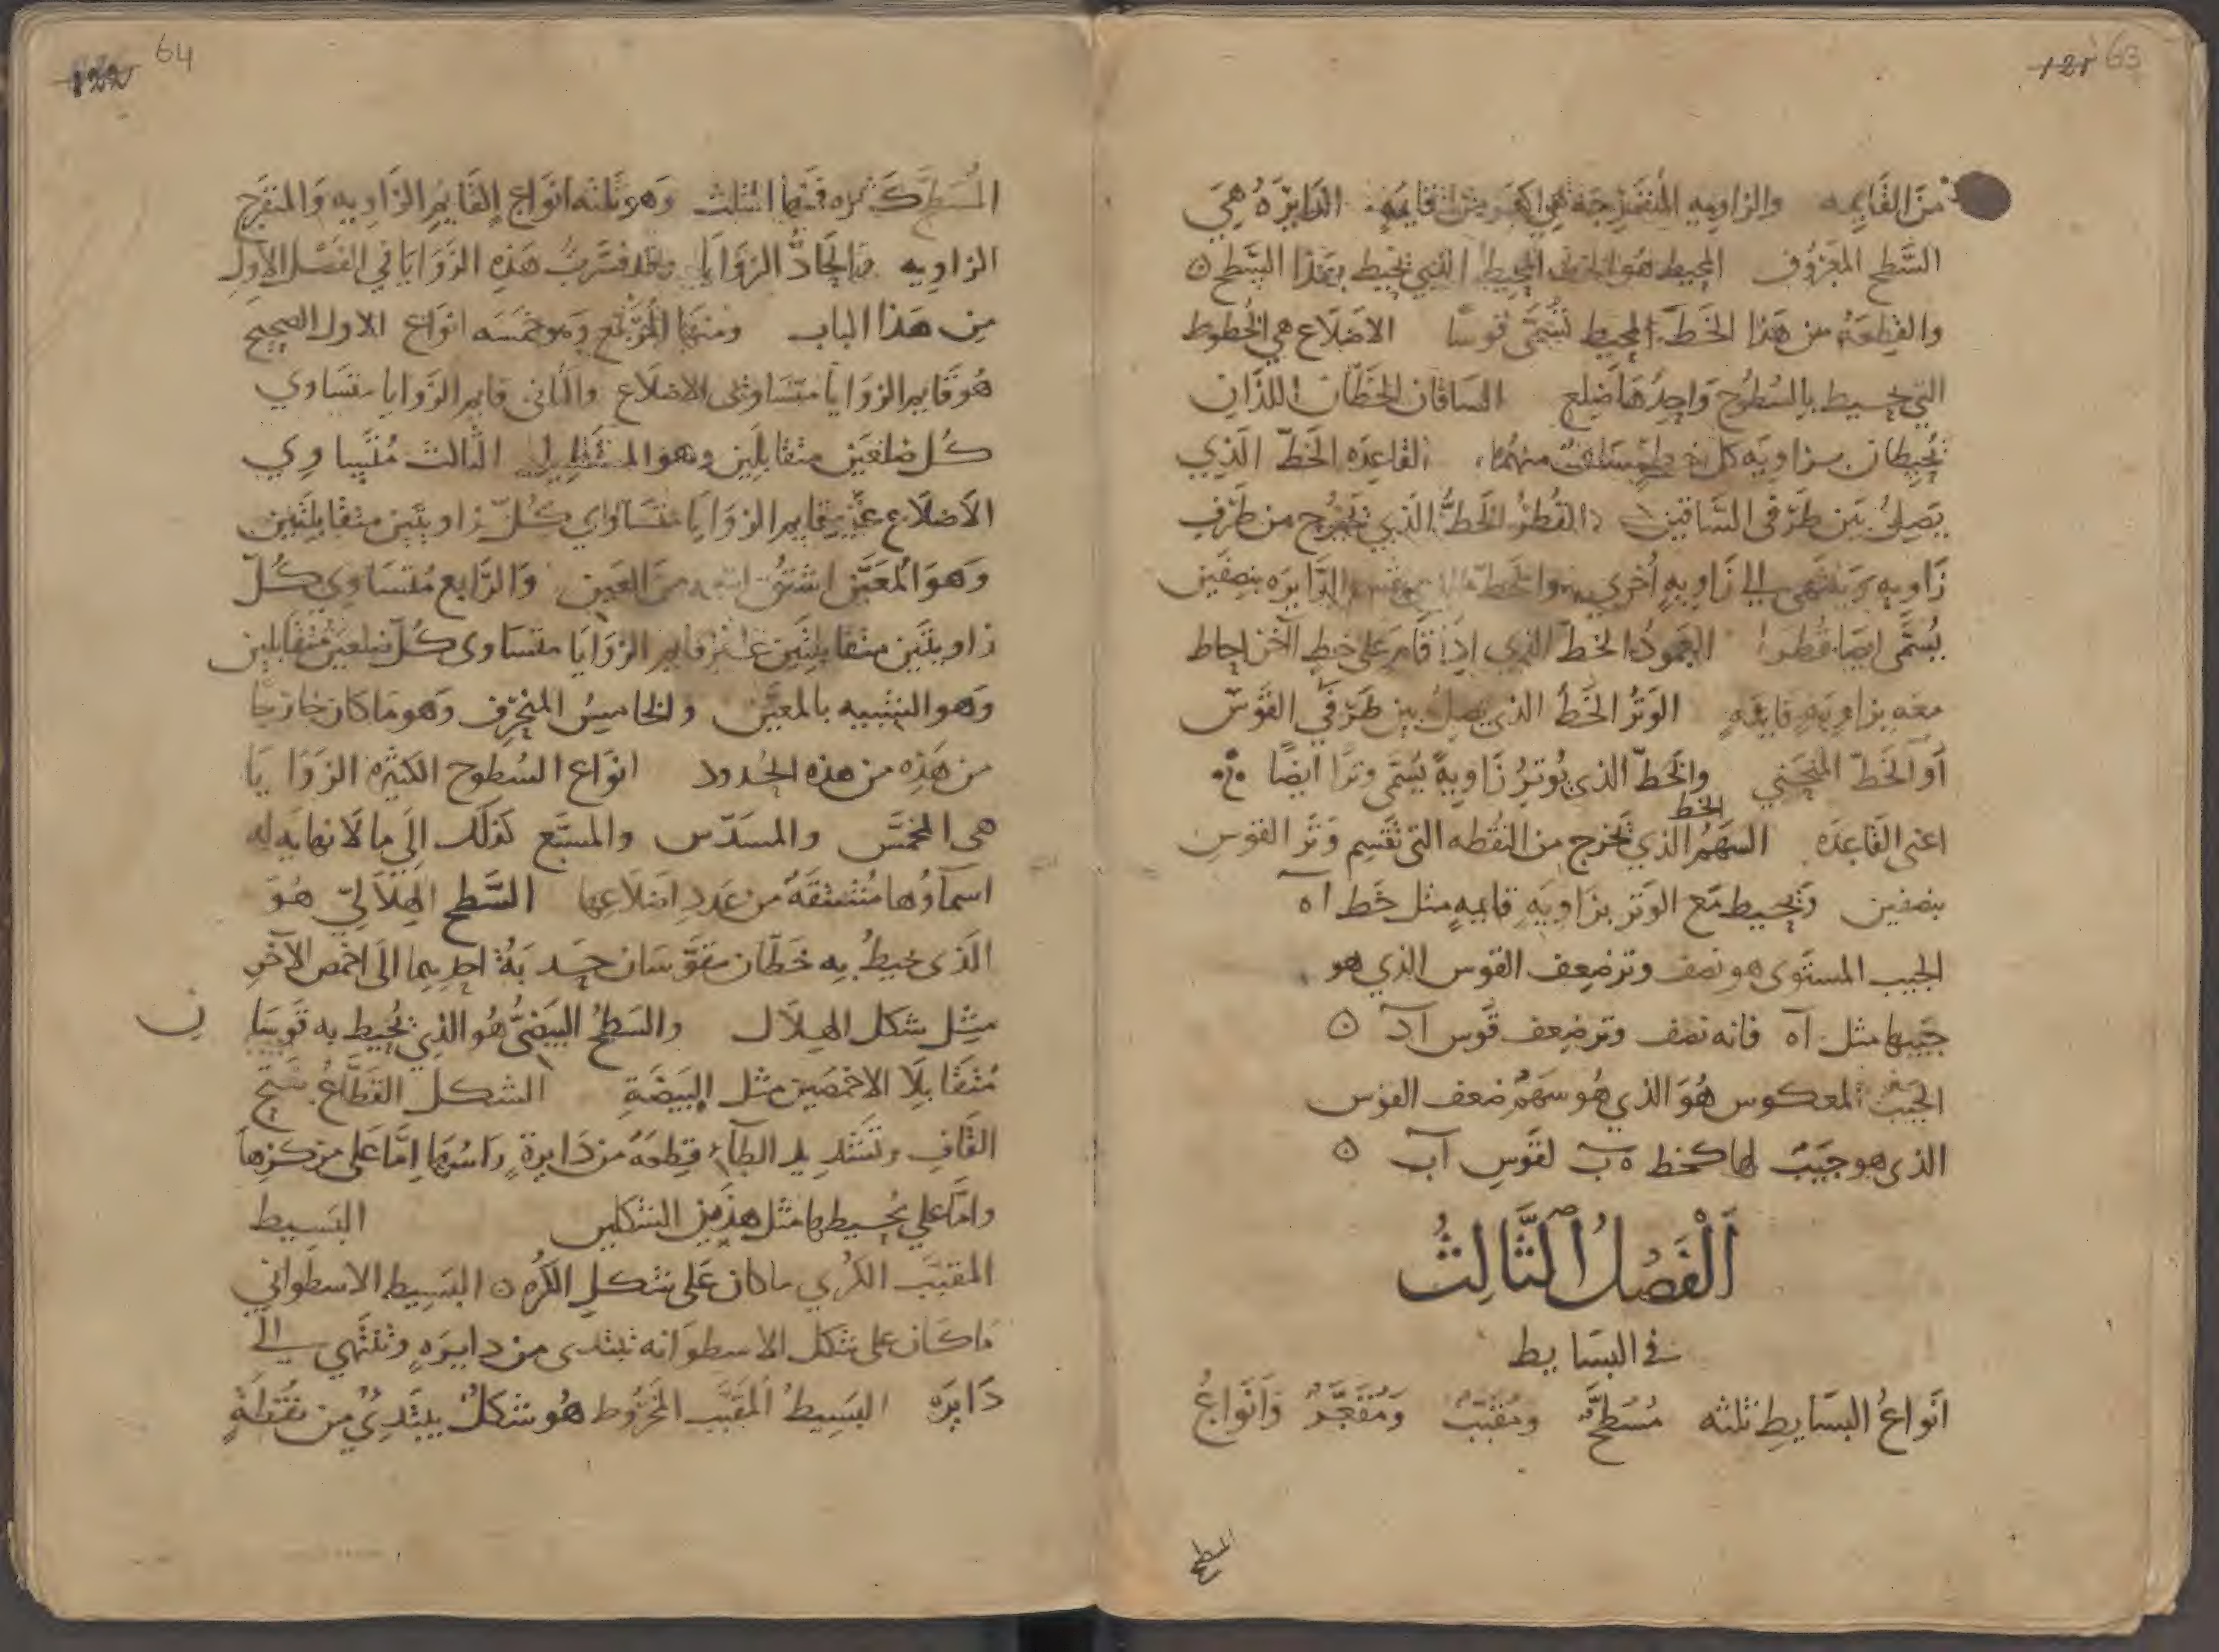 63
من القايمه والزاويه المنفرجه هي اكبر من القايمه الدايرة هي
السطح المعروف المحيط هو الخط المحيط الذي يحيط بهذا السطح
والقطعة من هذا الخط المحيط تسمى قوسا الاضلاع هي الخطوط
التي تحيط بالسطوح واحدها ضلع الساقان الخطان اللذان
يحيطان بزاويه كل خط ساق منهما القاعده الخط الذي
يصل بين طرفي الساقين القطر الخط الذي يخرج من طرف
زاويه وينتهي الي زاويه اخري والخط الدايره بنصفين
يسمى ايضا قطرا العمود الخط الذي اذا قام على خط آخر احاط
معه بزاويه قايمه الوتر الخط الذي يصل بين طرفي القوس
أو الخط المنحني والخط الذي يوتر زاوية يسمى وترا ايضا
اعني القاعده السهم الخط الذي يخرج من النقطه التي تقسم وتر القوس
بنصفين ويحيط مع الوتر بزاويه قايمه مثل خط آه
الجيب المستوى هو نصف وتر ضعف القوس الذي هو
جيبها مثل آه فانه نصف وتر ضعف قوس آد
الجيب المعكوس هو الذي هو سهم ضعف القوس
الذي هو جيب لها كخط ه ب لقوس آب
الفصل الثالث
في البسايط
انواع البسايط ثلثه مسطح ومقبب ومقعر وانواع
المسطح
64
المسطح كثيره فمنها المثلث وهو ثلثه انواع القايم الزاويه والمنفرج
الزاويه والحاد الزوايا وقد فسرت هذه الزوايا في الفصل الاول
من هذا الباب ومنها المربع وهو خمسه انواع الاول الصحيح
هو قايم الزوايا متساوى الاضلاع والثاني قايم الزوايا متساوي
كل ضلعين متقابلين وهو المستطيل الثالث متساوي
الاضلاع غير قايم الزوايا متساوي كل زاويتين متقابلتين
وهو المعين اشتق اسمه من العين والرابع متساوي كل
زاويتين متقابلتين غير قايم الزوايا متساوى كل ضلعين متقابلين
وهو الشبيه بالمعين والخامس المنحرف وهو ما كان خارجا
من هذه من هذه الحدود انواع السطوح الكثيره الزوايا
هي المخمس والمسدس والمسبع كذلك الي ما لا نهايه له
اسماوها مشتقة من عدد اضلاعها السطح الهلالي هو
الذي يحيط به خطان مقوسان حدبة احديهما الى اخمص الآخر
مثل شكل الهلال والسطح البيضي هو الذي يحيط به قوسا ن
متقابلا الاخمصين مثل البيضة الشكل القطاع بفتح
القاف وتشديد الطآء قطعة من دايرة راسها اما على مركزها
واما علي محيطها مثل هذين الشكلين البسيط
المقبب الكري ما كان على شكل الكره البسيط الاسطواني
ما كان على شكل الاسطوانه تبتدى من دايره وتنتهي الي
دايره البسيط المقبب المخروط هو شكل يبتدئ من نقطة